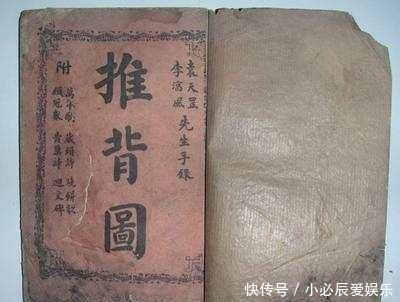 袁天罡
李淳風
先生手錄
推背圖
附
萬年歌 藏頭詩 燒餅歌
黃蘗詩
快传号 / 小必辰爱娱乐